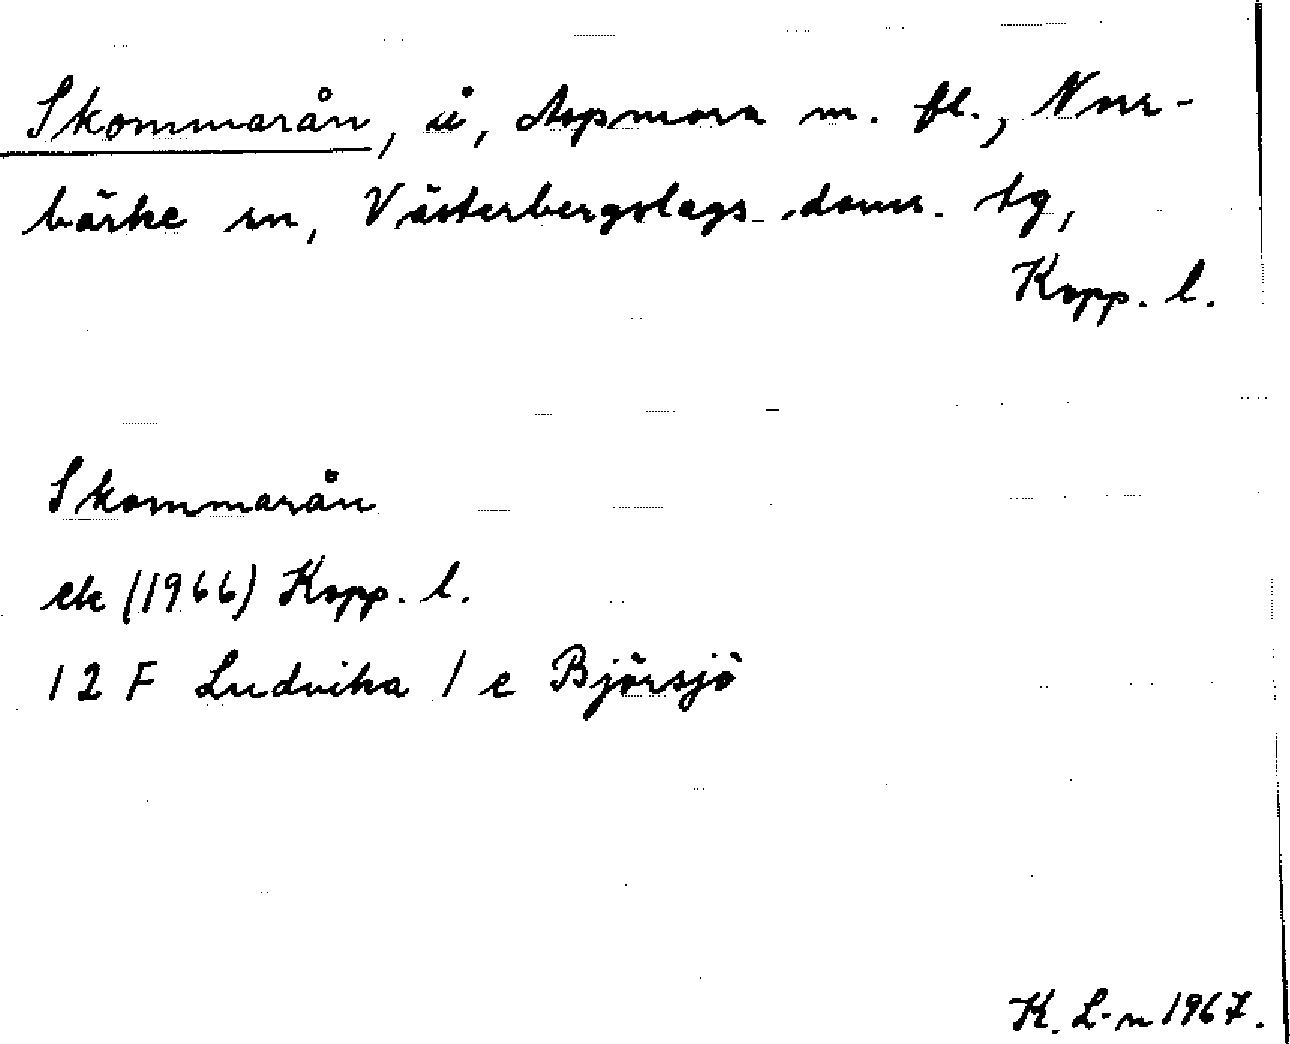 Skommarån, å, Aspmora m. fl., Norr-
bärke sn, Västerbergslags doms. tg,
Kopp. l.
Skommarån
ek (1966) Kopp. l.
12 F Ludvika / e Björsjö
K. L-n 1967.